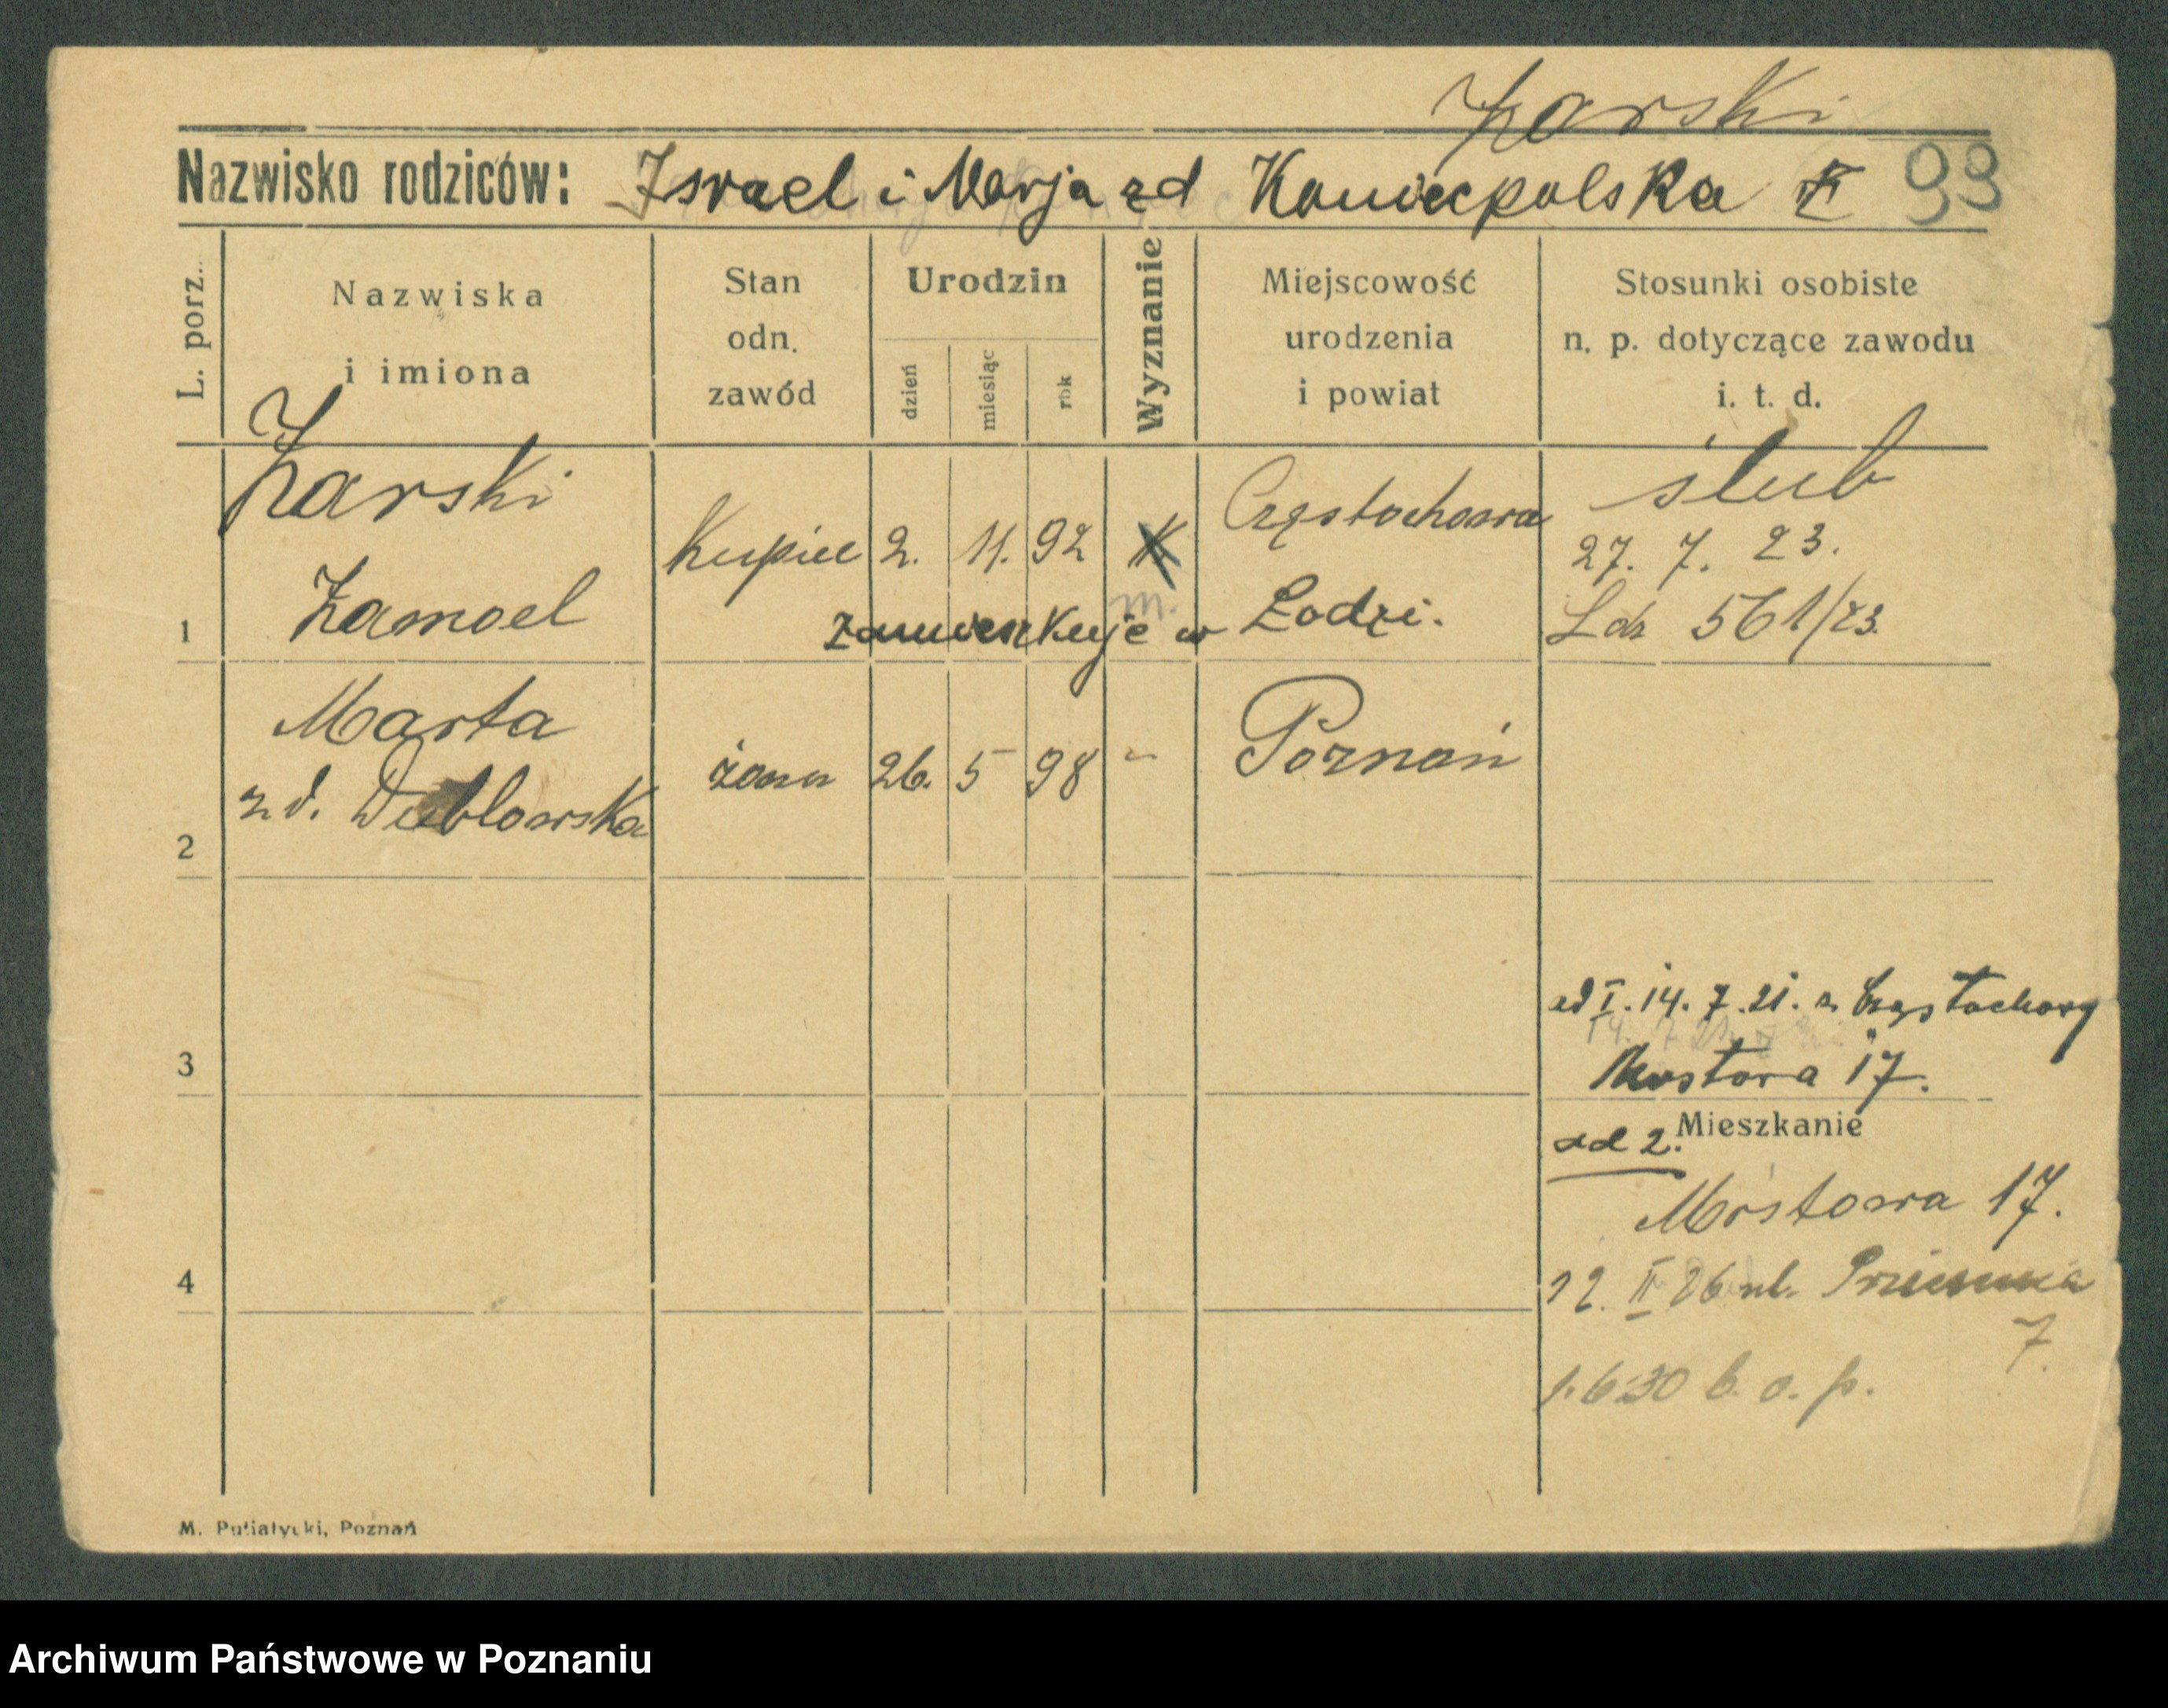 Żarski
Nazwisko rodziców: Israel i Marja zd Koniecpolska
99
L. porz.
Nazwiska
i imiona
Stan
odn.
zawód
Urodzin
dzień
miesiąc
rok
Wyznanie
Miejscowość
urodzenia
i powiat
Stosunki osobiste
n. p. dotyczące zawodu
i. t. d.
1
Żarski
Zamoel
Kupiec
2. 11. 92
Częstochowa
zamieszkuje w Łodzi.
m.
ślub
27. 7. 23.
Ldz 561/23.
2
Marta
z d. Dublowska
żona
26. 5 98
"
Poznań
3
od I. 14. 7. 21. z Częstochowy
Mostowa 17.
4
Mieszkanie
ad 2.
Mostowa 17.
12. II 26 ul.
7.
1.6.30 b. o. p.
M. Putiatycki, Poznań
Archiwum Państwowe w Poznaniu